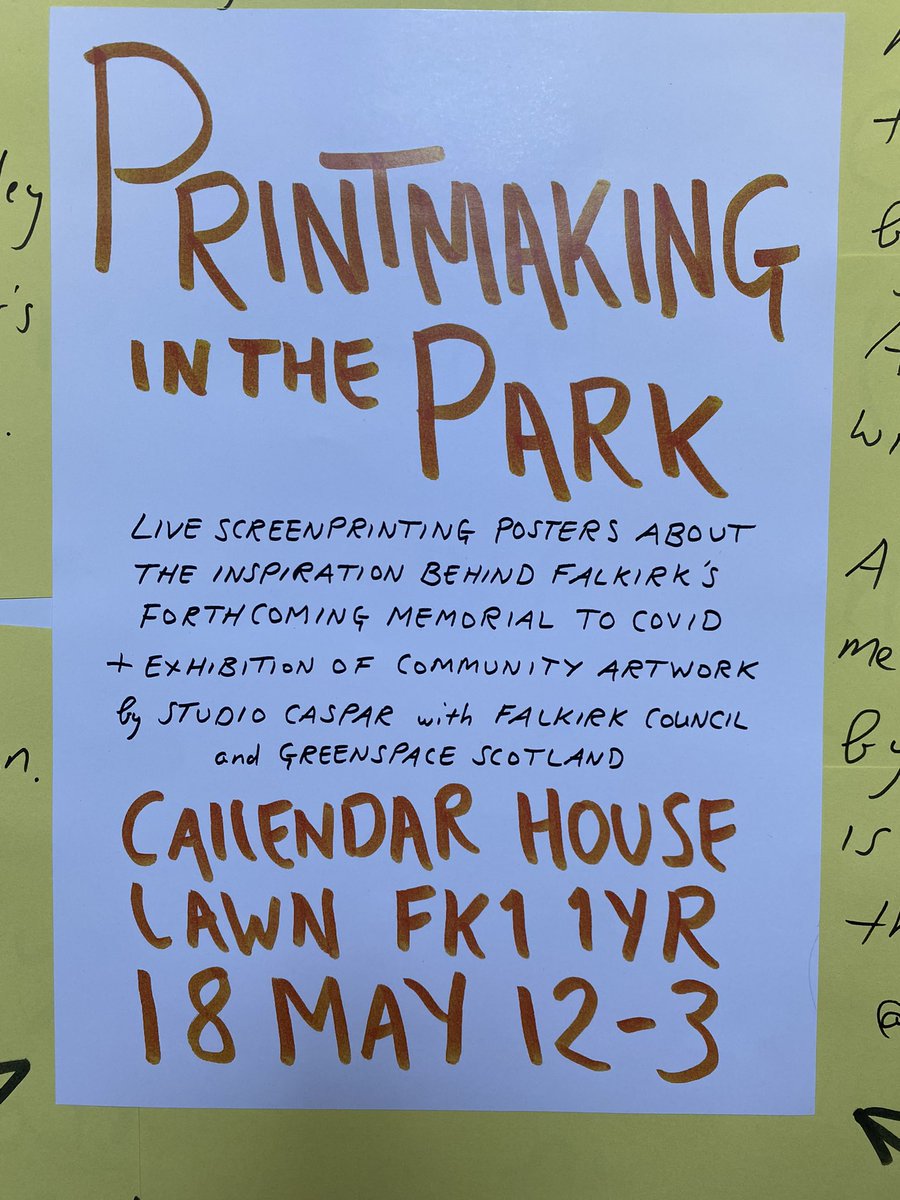 PRINTMAKING
IN THE PARK
LIVE SCREENPRINTING POSTERS ABOUT
THE INSPIRATION BEHIND FALKIRK'S
FORTHCOMING MEMORIAL TO COVID
+ EXHIBITION OF COMMUNITY ARTWORK
by STUDIO CASPAR with FALKIRK COUNCIL
and GREENSPACE SCOTLAND
CAllENDAR HOUSE
LAWN FK1 1YR
18 MAY 12-3
A
me
by
is
@